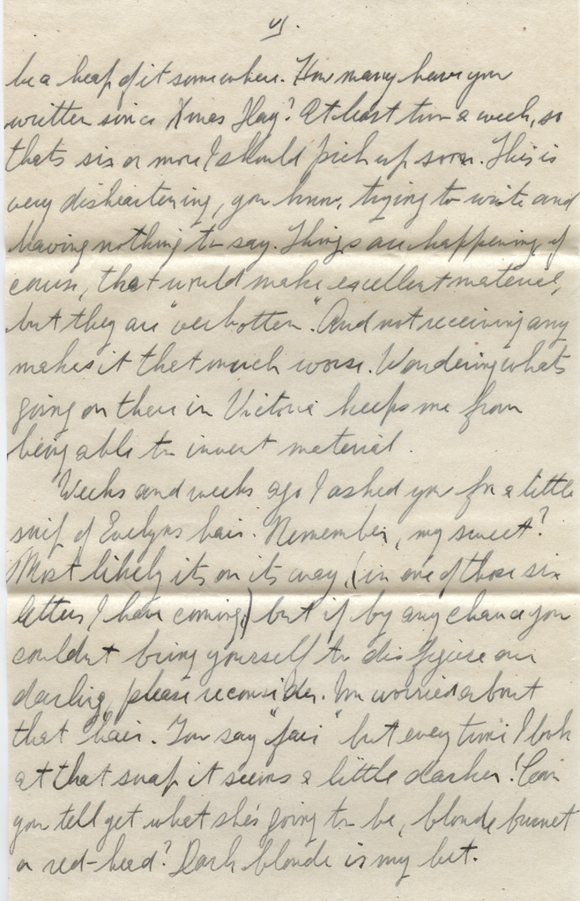 be a heap of it somewhere. How many have you
written since Xmas Hay? At least two a week, so
thats six or more I should pick up soon. This is
very disheartening, you know, trying to write and
having nothing to say. Things are happening of
course, that would make excellent material,
but they are "verbotten". And not receiving any
makes it that much worse. Wondering whats
going on there in Victoria keeps me from
being able to invent material.
Weeks and weeks ago I asked you for a little
snif of Evelyns hair. Remember, my sweet?
Most likely its on its way, (in one of those six
letters I have coming) but if by any chance you
couldnt bring yourself to disfigure our
darling, please reconsider. Im worried about
that hair. You say "fair" but every time I look
at that snap it seems a little darker! Can
you tell yet what she's going to be, blonde brunet
or red-head? Dark blonde is my bet.